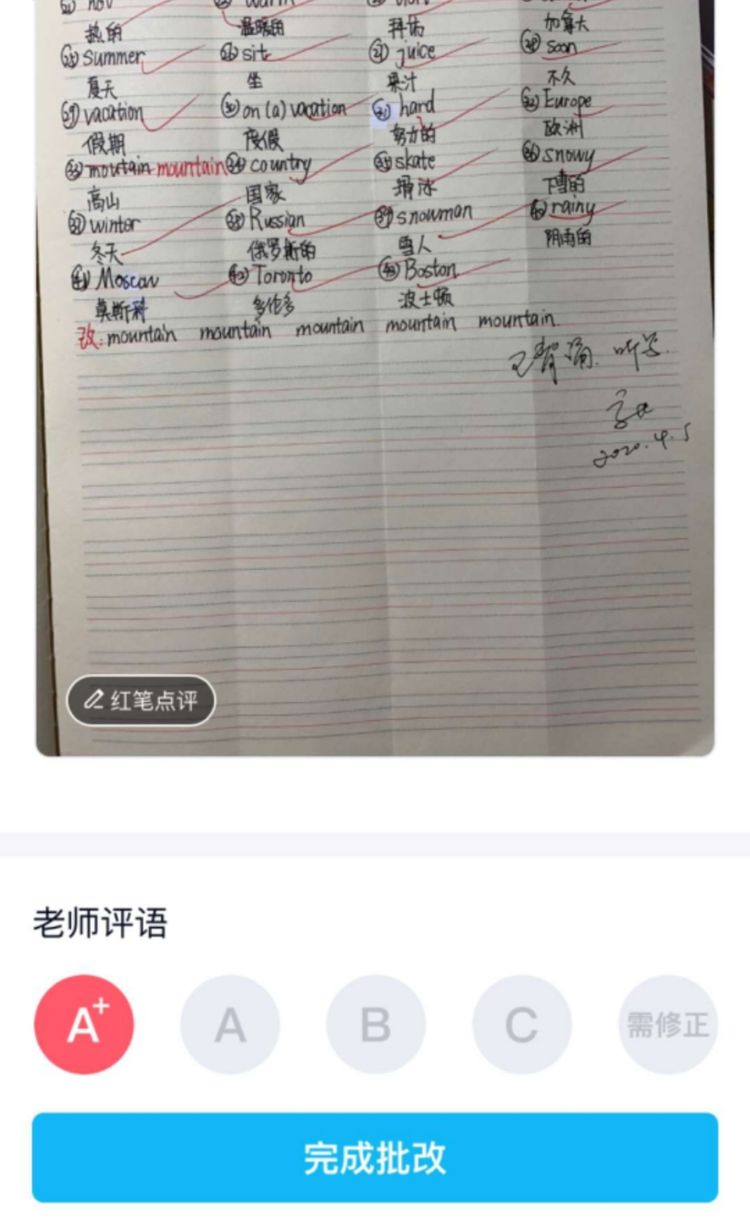 hot warm
热的 温暖的 拜访 加拿大
summer sit juice soon
夏天 坐 果汁 不久
vacation on (a) vacation hard Europe
假期 度假 努力的 欧洲
moutain mountain country skate snowy
高山 国家 滑冰 下雪的
winter Russian snowman rainy
冬天 俄罗斯的 雪人 阴雨的
Moscow Toronto Boston
莫斯科 多伦多 波士顿
改: mountain mountain mountain mountain mountain.
听写.
2020.4.5
红笔点评
老师评语
A+ A B C 需修正
完成批改